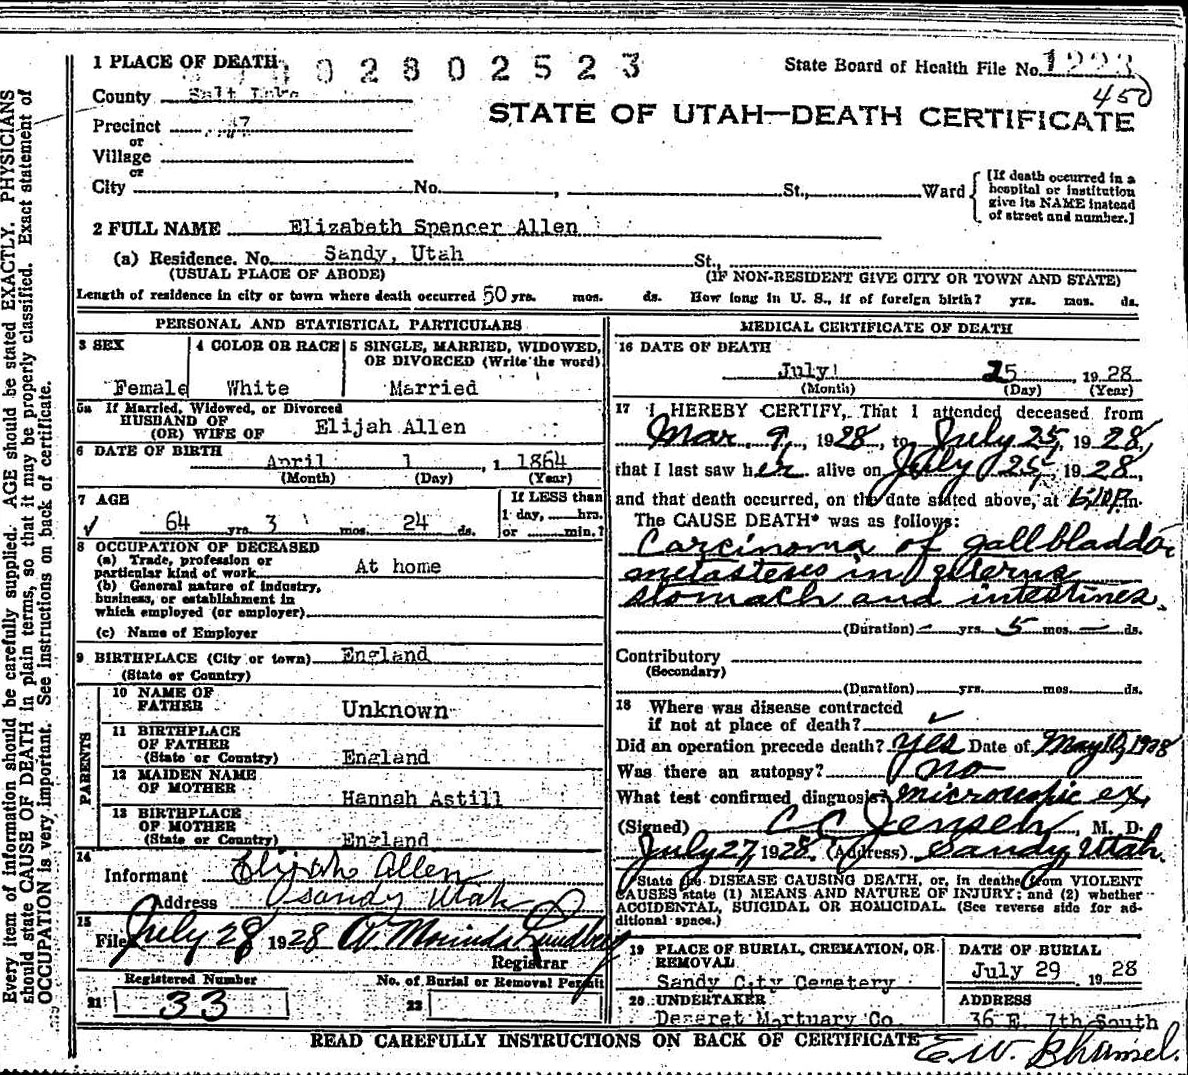 1 PLACE OF DEATH
0 2 8 0 2 5 2 3
State Board of Health File No. 1223
450
County Salt Lake
STATE OF UTAH—DEATH CERTIFICATE
Precinct
or
Village
or
City No. , St., Ward
[If death occurred in a
hospital or institution
give its NAME instead
of street and number.]
2 FULL NAME Elizabeth Spencer Allen
(a) Residence. No. Sandy, Utah St.,
(USUAL PLACE OF ABODE) (IF NON-RESIDENT GIVE CITY OR TOWN AND STATE)
Length of residence in city or town where death occurred 50 yrs. mos. ds. How long in U. S., if of foreign birth? yrs. mos. ds.
PERSONAL AND STATISTICAL PARTICULARS
3 SEX
Female
4 COLOR OR RACE
White
5 SINGLE, MARRIED, WIDOWED,
OR DIVORCED (Write the word)
Married
5a If Married, Widowed, or Divorced
HUSBAND OF
(OR) WIFE OF Elijah Allen
6 DATE OF BIRTH April 1, 1864
(Month) (Day) (Year)
7 AGE
64 yrs. 3 mos. 24 ds.
If LESS than
1 day, hrs.
or min.?
8 OCCUPATION OF DECEASED
(a) Trade, profession or
particular kind of work At home
(b) General nature of industry,
business, or establishment in
which employed (or employer)
(c) Name of Employer
9 BIRTHPLACE (City or town) England
(State or Country)
PARENTS
10 NAME OF
FATHER Unknown
11 BIRTHPLACE
OF FATHER
(State or Country) England
12 MAIDEN NAME
OF MOTHER Hannah Astill
13 BIRTHPLACE
OF MOTHER
(State or Country) England
14
Informant Elijah Allen
Address Sandy Utah
15
Filed July 28 1928 A. Morinda Lundberg
Registrar
Registered Number
21 33
No. of Burial or Removal Permit
22
MEDICAL CERTIFICATE OF DEATH
16 DATE OF DEATH
July 25, 1928
(Month) (Day) (Year)
17 I HEREBY CERTIFY, That I attended deceased from
Mar. 9, 1928, to July 25, 1928,
that I last saw her alive on July 25, 1928,
and that death occurred, on the date stated above, at m.
The CAUSE DEATH* was as follows:
Carcinoma of gallbladder
metasteses in
stomach and intestines.
(Duration) — yrs. 5 mos. — ds.
Contributory
(Secondary)
(Duration) yrs. mos. ds.
18 Where was disease contracted
if not at place of death?
Did an operation precede death? Yes Date of May 10, 1928
Was there an autopsy? no
What test confirmed diagnosis? microscopic ex.
(Signed) C C Jensen, M. D.
July 27, 1928. (Address) Sandy Utah.
*State the DISEASE CAUSING DEATH, or, in deaths from VIOLENT
CAUSES state (1) MEANS AND NATURE OF INJURY; and (2) whether
ACCIDENTAL, SUICIDAL OR HOMICIDAL. (See reverse side for ad-
ditional space.)
19 PLACE OF BURIAL, CREMATION, OR
REMOVAL
Sandy City Cemetery
DATE OF BURIAL
July 29 1928
20 UNDERTAKER
Deseret Mortuary Co.
ADDRESS
36 E. 7th South
READ CAREFULLY INSTRUCTIONS ON BACK OF CERTIFICATE
E. W.
Every item of information should be carefully supplied. AGE should be stated EXACTLY. PHYSICIANS
should state CAUSE OF DEATH in plain terms, so that it may be properly classified. Exact statement of
OCCUPATION is very important. See instructions on back of certificate.